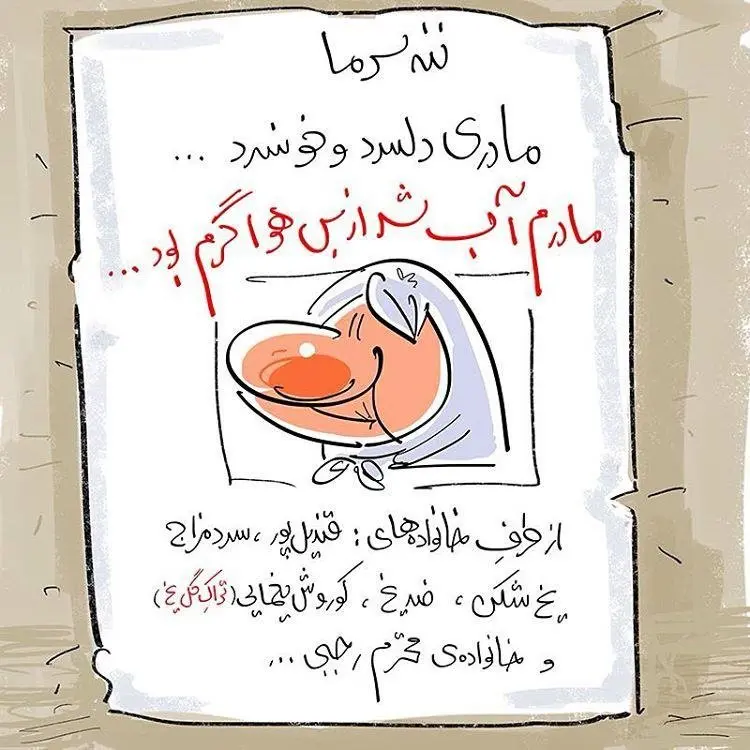 ننه سرما
مادری دلسرد و خونسرد ...
مادرم آب شد از بس هوا گرم بود ...
از طرفِ خانواده‌های : قندیل‌پور ، سردمزاج
یخ شکن ، ضدیخ ، کوروش یغمایی (تراکِ گل یخ)
و خانواده‌ی محترم رجبی ...